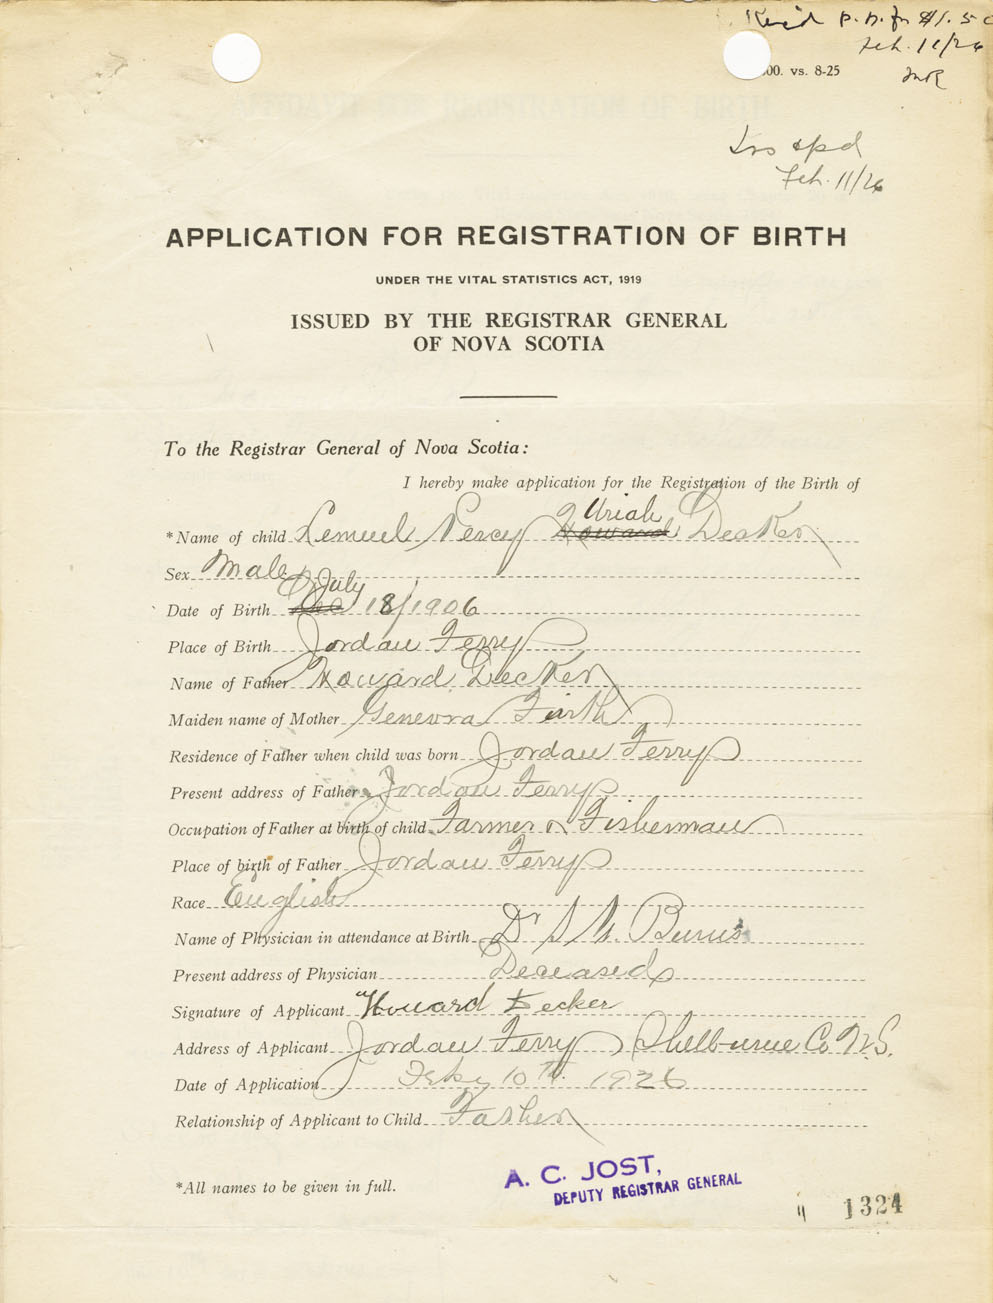 Rec'd P.N. for $1.50
Feb. 11/26
00. vs. 8-25
MR
Feb. 11/26
APPLICATION FOR REGISTRATION OF BIRTH
UNDER THE VITAL STATISTICS ACT, 1919
ISSUED BY THE REGISTRAR GENERAL
OF NOVA SCOTIA
To the Registrar General of Nova Scotia:
I hereby make application for the Registration of the Birth of
Uriah
*Name of child Lemuel Percy Howard Decker
Sex Male
July
Date of Birth Dec 18/1906
Place of Birth Jordan Ferry
Name of Father Howard Decker
Maiden name of Mother Genevra Firth
Residence of Father when child was born Jordan Ferry
Present address of Father Jordan Ferry
Occupation of Father at birth of child Farmer & Fisherman
Place of birth of Father Jordan Ferry
Race English
Name of Physician in attendance at Birth Dr Burns
Present address of Physician Deceased
Signature of Applicant "Howard Decker
Address of Applicant Jordan Ferry Shelburne Co N.S.
Date of Application Feby 10th 1926
Relationship of Applicant to Child Father
*All names to be given in full.
A. C. JOST,
DEPUTY REGISTRAR GENERAL
1324